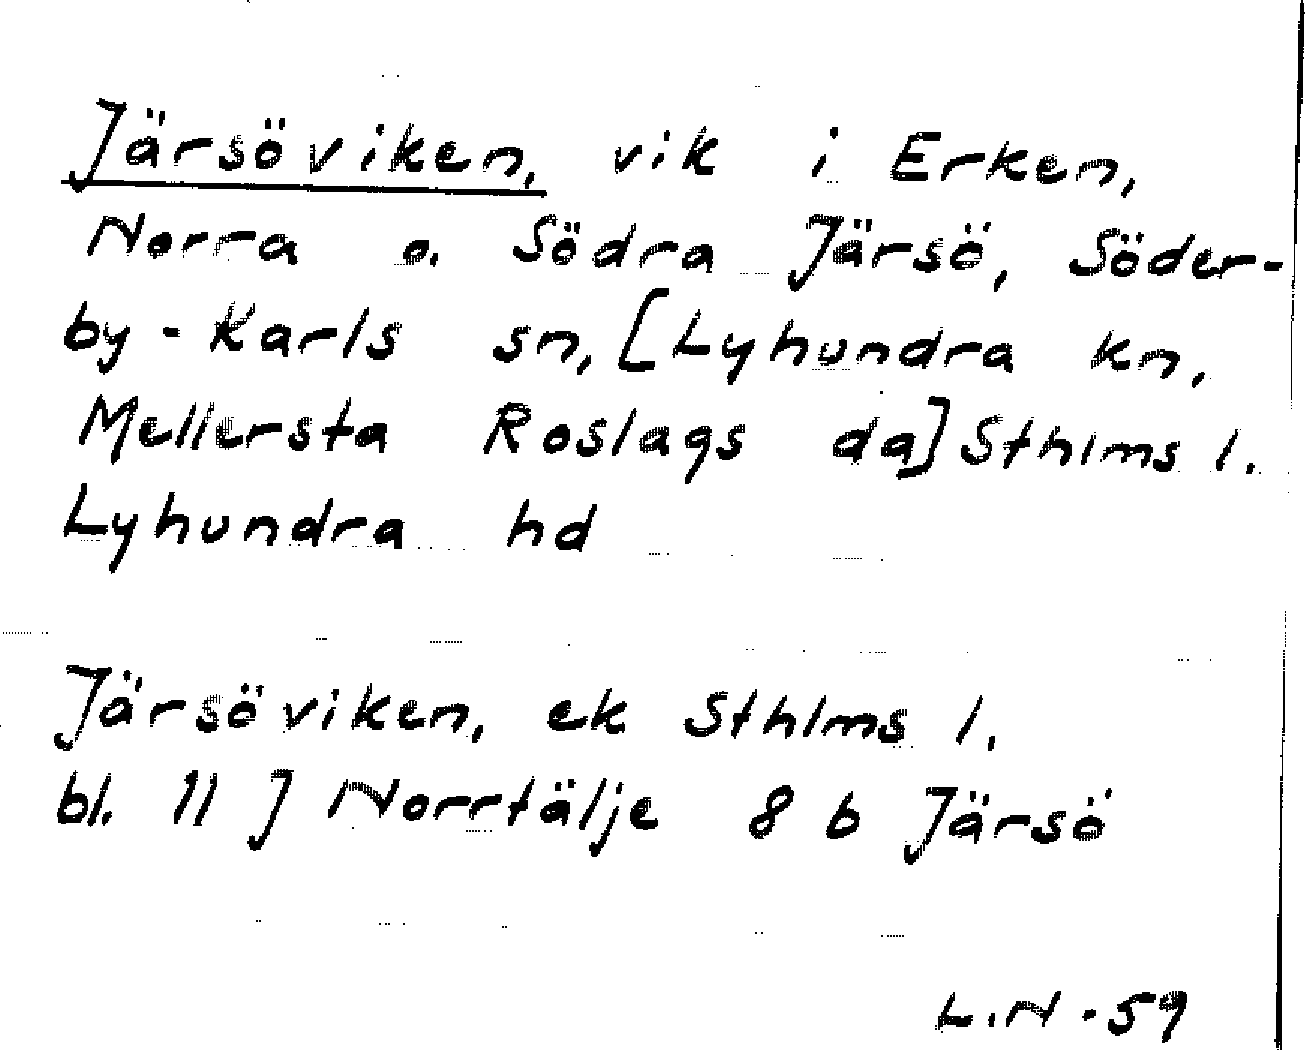 Järsöviken, vik i Erken,
Norra o. Södra Järsö, Söder-
by-Karls sn, [Lyhundra kn,
Mellersta Roslags da] Sthlms l.
Lyhundra hd
Järsöviken, ek Sthlms l.
bl. 11 J Norrtälje 8 b Järsö
L.N -59